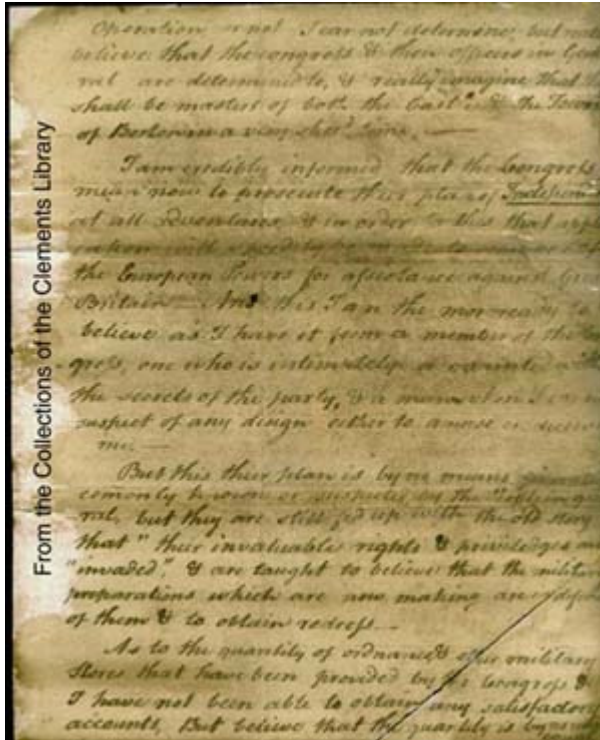 From the Collections of the Clements Library
Operation or not I can not determine, but
believe that the congress & their officers in Gene
ral are determined to, & really imagine that
shall be masters of both the & the Town
of Boston in a very short time.
I am credibly informed that the Congress
mean now to prosecute their plan of Independ
at all adventures, & in order to this that
the European Powers for assistance against
Britain And this I am the more ready to
believe as I have it from a member of the
gress, one who is intimately acquainted
the secrets of the party, & a man whom I
suspect of any design either to amuse or deceive
me.
But this their plan is by no means
comonly known or suspected by the
ral, but they are still fed up with the old story
that "their invaluable rights & priviledges are
"invaded", & are taught to believe that the military
preparations which are now making are
of them & to obtain redress
As to the quantity of ordnance & other military
stores that have been provided by the Congress &
I have not been able to obtain any satisfactory
accounts, But believe that the quantity is by